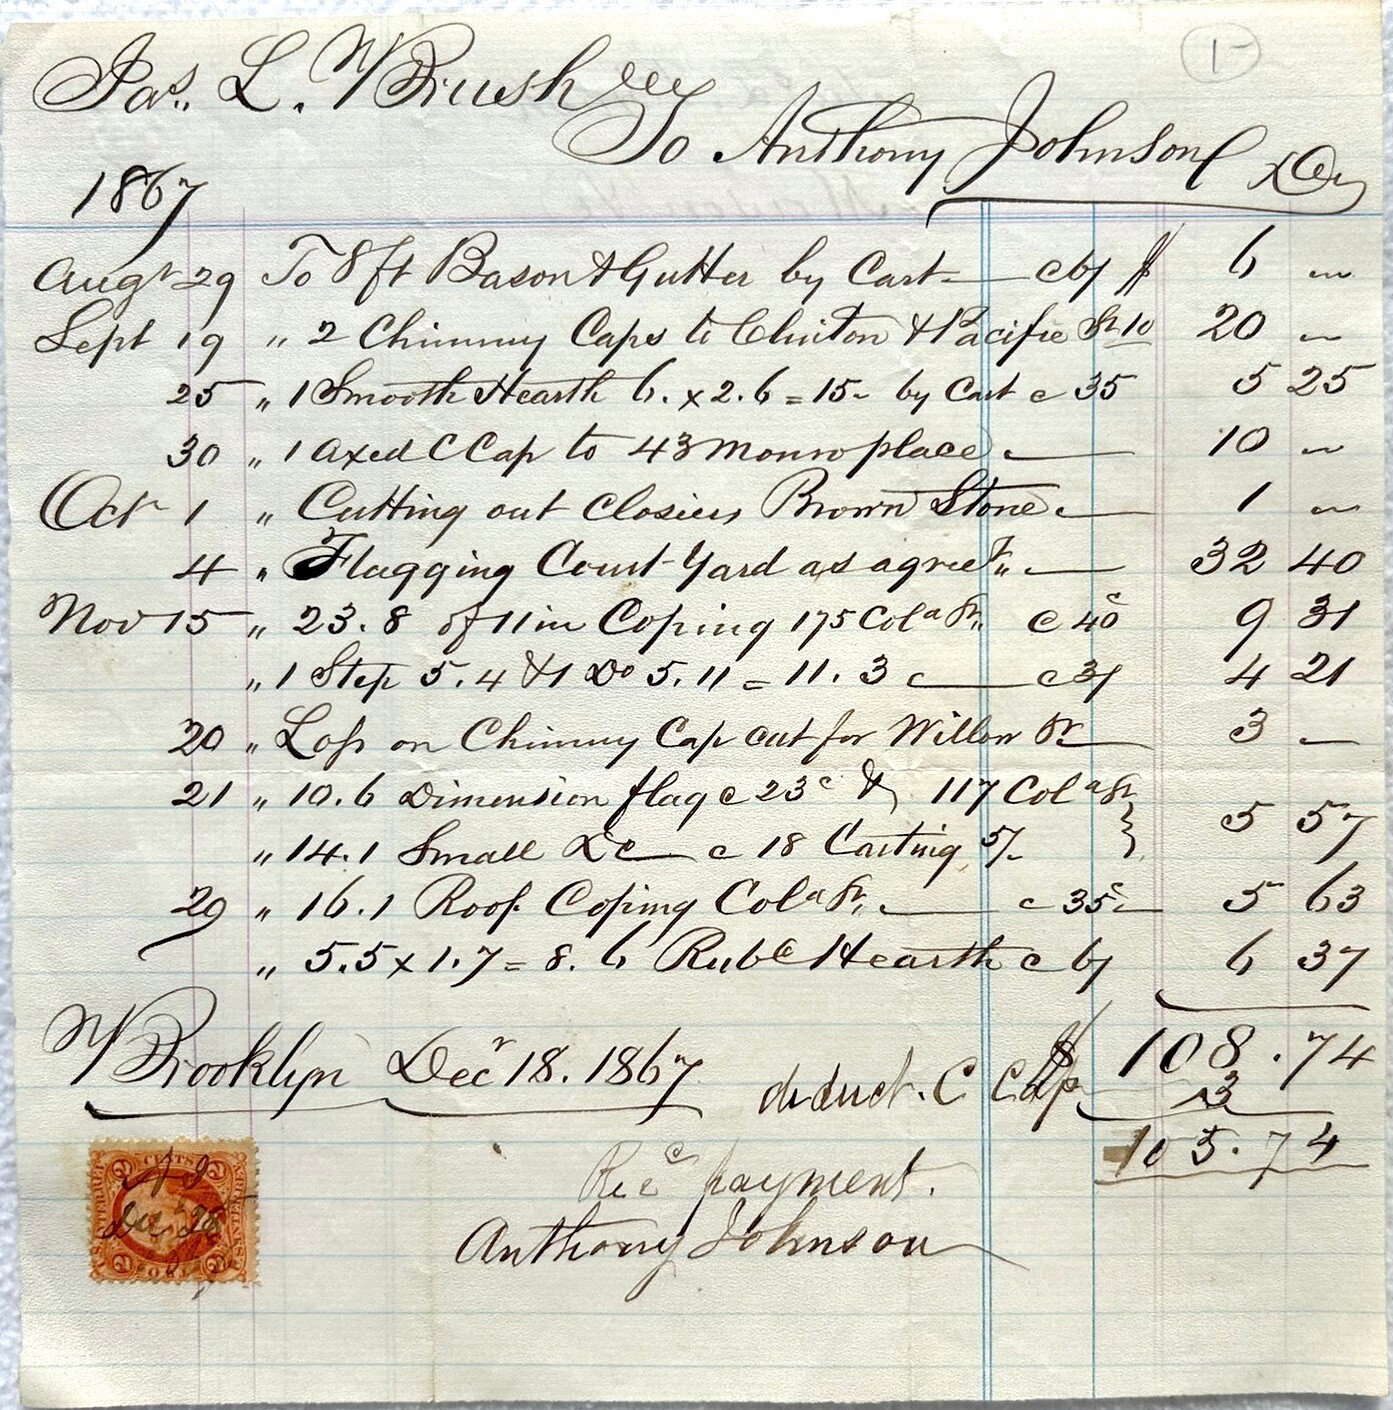 1-
Jas. L. Brush Esq
To Anthony Johnson Dr
1867
Augt 29 To 8 ft Bason & Gutter by Cart — c 6/ $ 6 "
Sept 19 " 2 Chimny Caps to Clinton & Pacific St 10 20 "
25 " 1 Smooth Hearth 6. x 2.6 = 15- by Cart c 35 5 25
30 " 1 axed C Cap to 43 Monro place — 10 "
Oct 1 " Cutting out Closiers Brown Stone — 1 "
4 " Flagging Court Yard as agreet " — 32 40
Nov 15 " 23.8 of 11 in Coping 175 Cola St " c 40c 9 31
" 1 Step 5.4 & 1 Do 5.11 = 11.3 — c 3/ 4 21
20 " Loss on Chimny Cap cut for Willow St — 3 —
21 " 10.6 Dimension flag c 23c & 117 Cola St
" 14.1 Small Do — c 18 Carting 5/- 5 57
29 " 16.1 Roof Coping Cola St, — c 35c — 5 63
" 5.5 x 1.7 = 8.6 Rubd Hearth c 6/ 6 37
Brooklyn Decr 18. 1867 $ 108.74
deduct. C Cap 3
105.74
Recd payment.
Anthony Johnson
U.S. INTER. REV.
2 CENTS 2
A J
Dec 28